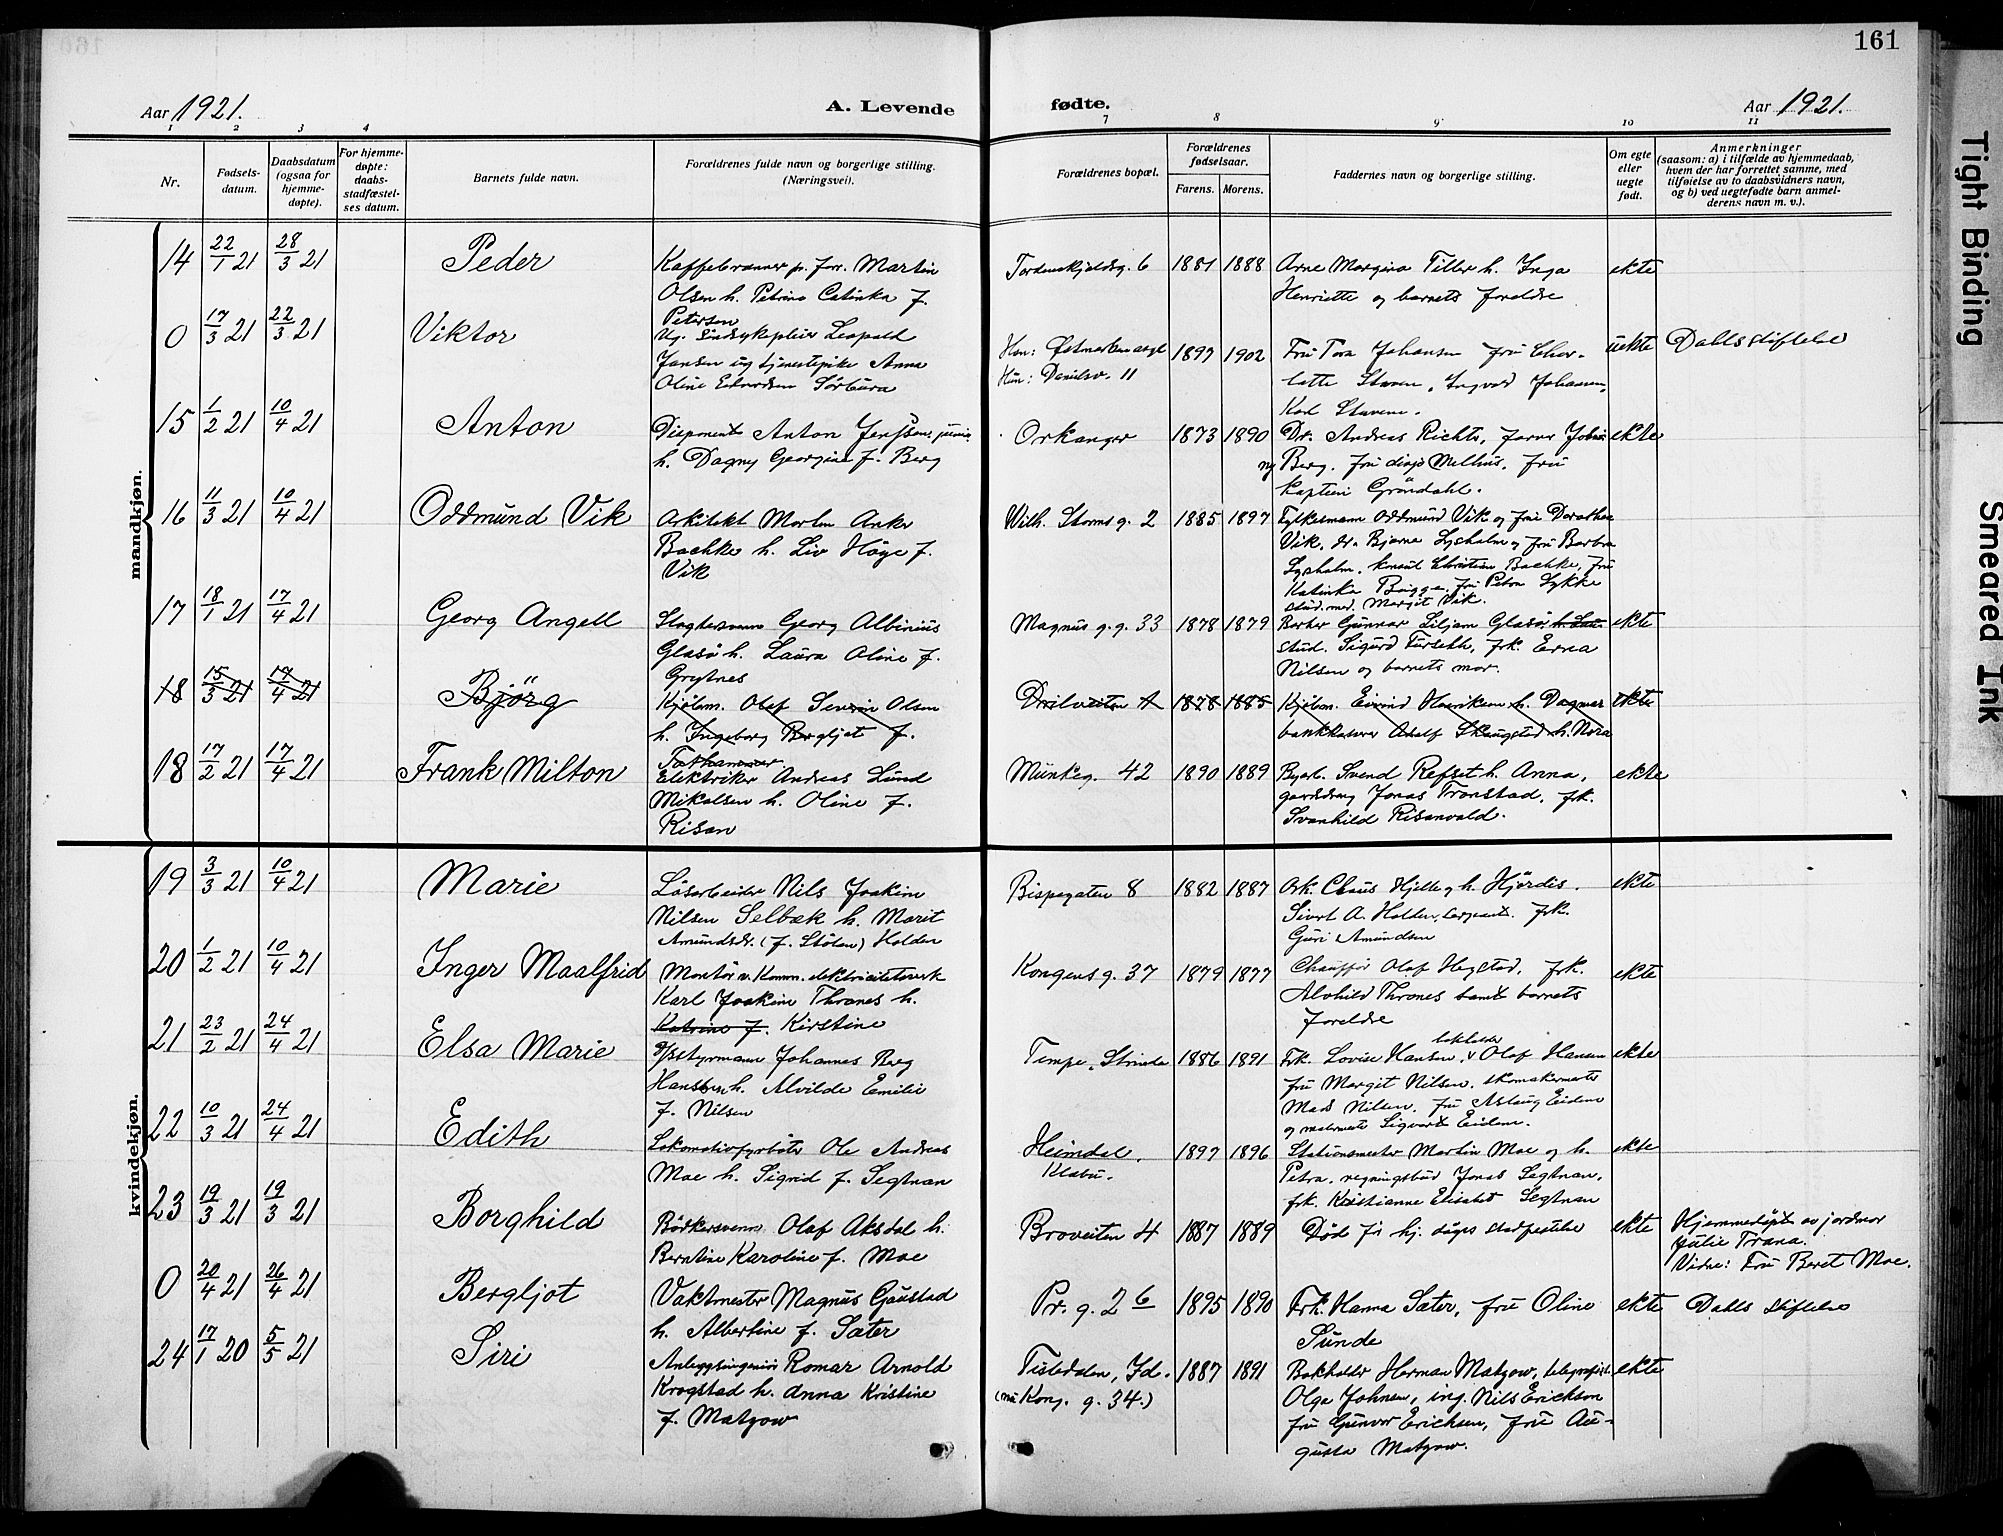 161
Aar 1921.
A. Levende
fødte.
Aar 1921.
1 2 3 4 7 8 9 10 11
Nr.
Fødsels-
datum.
Daabsdatum
(ogsaa for
hjemme-
døpte).
For hjemme-
døpte:
daabs-
stadfæstel-
ses datum.
Barnets fulde navn.
Forældrenes fulde navn og borgerlige stilling.
(Næringsvei).
Forældrenes bopæl.
Forældrenes
fødselsaar.
Farens. Morens.
Faddernes navn og borgerlige stilling.
Om egte
eller
uegte
født.
Anmerkninger
(saasom: a) i tilfælde av hjemmedaab,
hvem der har forrettet samme, med
tilføielse av to daabsvidners navn,
og b) ved uegtefødte barn anmel-
derens navn m. v.).
mandkjøn.
14 22/1 21 28/3 21 Peder
Kaffebrænner p. forr. Martin
Olsen h. Petrine Catinka f.
Petersen
Tordenskjoldsg. 6 1881 1888
Arne Margino Tiller h. Inga
Henriette og barnets foreldre
ekte
0 17/3 21 22/3 21 Viktor
Ug. Sindsykepleier Leopold
Jansen og tjenestepike Anna
Oline Edvardsen Sörbura
Han: Østmarken asyl
Hun: Danielsv. 11
1897 1902
Fru Tora Johansen fru Char-
lotte Stavem, Ingvald Johansen,
Karl Stavene.
uekte Dahls stiftelse
15 1/2 21 10/4 21 Anton
Disponent Anton Jenssen, junior
h. Dagny Georgine f. Berg
Orkanger 1873 1890
Dr. Andreas Richter, Johne
Berg. fru disp Melhus, fru
kaptein Gröndahl.
ekte
16 11/3 21 10/4 21 Oddmund Vik
Arkitekt Morten Anker
Bachke h. Liv Høye f.
Vik
Wilh. Stormsg. 2 1885 1897
Fylkesmann Oddmund Vik og frue Dorothea
Vik, dr. Bjarne Lysholm og fru Barbra
Lysholm, konsul Christian Bachke, fru
Katinka Brigge, fru Petra Lykke
stud. med. Margit Vik.
17 18/1 21 17/4 21 Georg Angell
Slagtersvenn Georg Albinius
Glasö h. Laura Oline f.
Grytnes
Magnus g.g. 33 1878 1879
Barber Gunnar Liljam Glasö
stud. Sigurd Furseth, frk. Erna
Nilsen og barnets mor.
ekte
18 15/3 21 17/4 21 Björg
Kjölem. Olaf Severin Olsen
h. Ingeborg Bergljot f.
Fathammer
Drilveiten 1 1878 1885
Kjöbm. Eivind Henriksen h. Dagmar
bankkasserer Adolf Skaugstad h. Nora
ekte
18 17/2 21 17/4 21 Frank Milton
Elektriker Andreas Lund
Mikalsen h. Oline f.
Risan
Munkeg. 42 1890 1889
Byarb. Svend Refset h. Anna,
gaardsdreng Jonas Tronstad, frk.
Svanhild Risanvald.
ekte
kvindekjøn.
19 3/3 21 10/4 21 Marie
Løsarbeider Nils Joakim
Nilsen Selbæk h. Marit
Amundsdr. (f. Stölen) Holden
Bispegaten 8 1882 1887
Ark. Claus Hjelle og h. Hjördis.
Sivert A. Holden, sergeant. frk.
Guri Amundsen
ekte
20 1/2 21 10/4 21 Inger Maalfrid
Montör v. Komm. elektricitetsverk
Karl Joakim Thrones h.
Katrine f. Kirstine
Kongens g. 37 1879 1877
Chauffør Olaf Hegstad, frk.
Alvhild Thrones samt barnets
foreldre
ekte
21 23/2 21 24/4 21 Elsa Marie
Styrmann Johannes Berg
Hansen h. Alvilde Emilie
f. Nilsen
Tempe, Strinda 1886 1891
Frk. Lovise Hansen, Olaf Hansen
fru Margit Nilsen, skomakermester
Mads Nilsen, fru Aslaug Eidem
og malermester Sigvart Eidem.
ekte
22 10/3 21 24/4 21 Edith
Lokomotivfyrböter Ole Andreas
Moe h. Sigrid f. Segtnan
Heimdal,
Klæbu.
1897 1896
Stationsmester Martin Moe og h.
Petra, regningsbud Jonas Segtnan,
frk. Kristianne Elisabet Segtnan
ekte
23 19/3 21 19/3 21 Borghild
Bödkersvenn Olaf Aksdal h.
Berntine Karoline f. Moe
Broveiten 4 1887 1889
Död för hj. dåps stadfestelse
ekte
Hjemmedöpt av jordmor
Julie Trana.
Vidne: Fru Beret Moe.
0 20/4 21 26/4 21 Bergljot
Vaktmester Magnus Gaustad
h. Albertine f. Sæter
Pr. g. 26 1895 1890
Frk. Hanna Sæter, fru Oline
Sunde
ekte Dahls stiftelse
24 17/1 20 5/5 21 Siri
Anleggsingeniör Romar Arnold
Krogstad h. Anna Kristine
f. Matzow
Tistedalen, Id.
(nu Kong. g. 34.)
1887 1891
Bokholder Herman Matzow, telegrafist.
Olga Johnsen, ing. Nils Erickson
fru Gunvor Ericksen, fru Au-
gusta Matzow.
ekte
Tight Binding
Smeared Ink